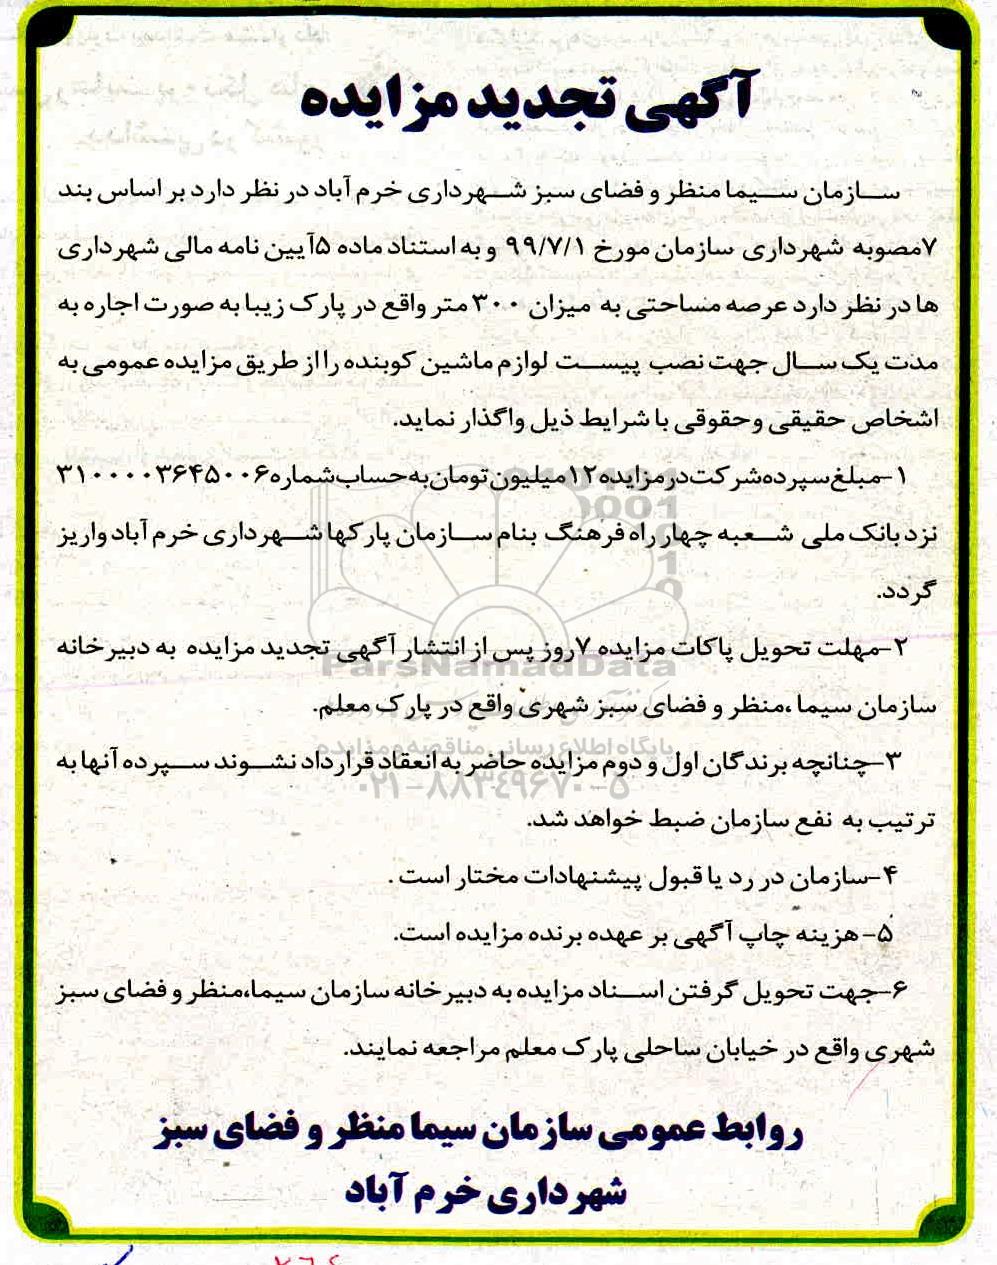 آگهی تجدید مزایده
سازمان سیما منظر و فضای سبز شهرداری خرم آباد در نظر دارد بر اساس بند
۷مصوبه شهرداری سازمان مورخ ۹۹/۷/۱ و به استناد ماده ۵آیین نامه مالی شهرداری
ها در نظر دارد عرصه مساحتی به میزان ۳۰۰ متر واقع در پارک زیبا به صورت اجاره به
مدت یک سال جهت نصب پیست لوازم ماشین کوبنده را از طریق مزایده عمومی به
اشخاص حقیقی وحقوقی با شرایط ذیل واگذار نماید.
۱-مبلغ سپرده شرکت در مزایده ۱۲میلیون تومان به حساب شماره ۳۱۰۰۰۰۳۶۴۵۰۰۶
نزد بانک ملی شعبه چهار راه فرهنگ بنام سازمان پارکها شهرداری خرم آباد واریز
گردد.
۲-مهلت تحویل پاکات مزایده ۷روز پس از انتشار آگهی تجدید مزایده به دبیرخانه
سازمان سیما ،منظر و فضای سبز شهری واقع در پارک معلم.
۳-چنانچه برندگان اول و دوم مزایده حاضر به انعقاد قرارداد نشوند سپرده آنها به
ترتیب به نفع سازمان ضبط خواهد شد.
۴-سازمان در رد یا قبول پیشنهادات مختار است .
۵- هزینه چاپ آگهی بر عهده برنده مزایده است.
۶-جهت تحویل گرفتن اسناد مزایده به دبیرخانه سازمان سیما،منظر و فضای سبز
شهری واقع در خیابان ساحلی پارک معلم مراجعه نمایند.
روابط عمومی سازمان سیما منظر و فضای سبز
شهرداری خرم آباد
ParsNamadData
پایگاه اطلاع رسانی مناقصه و مزایده
۰۲۱-۸۸۳۴۹۶۷۰-۵